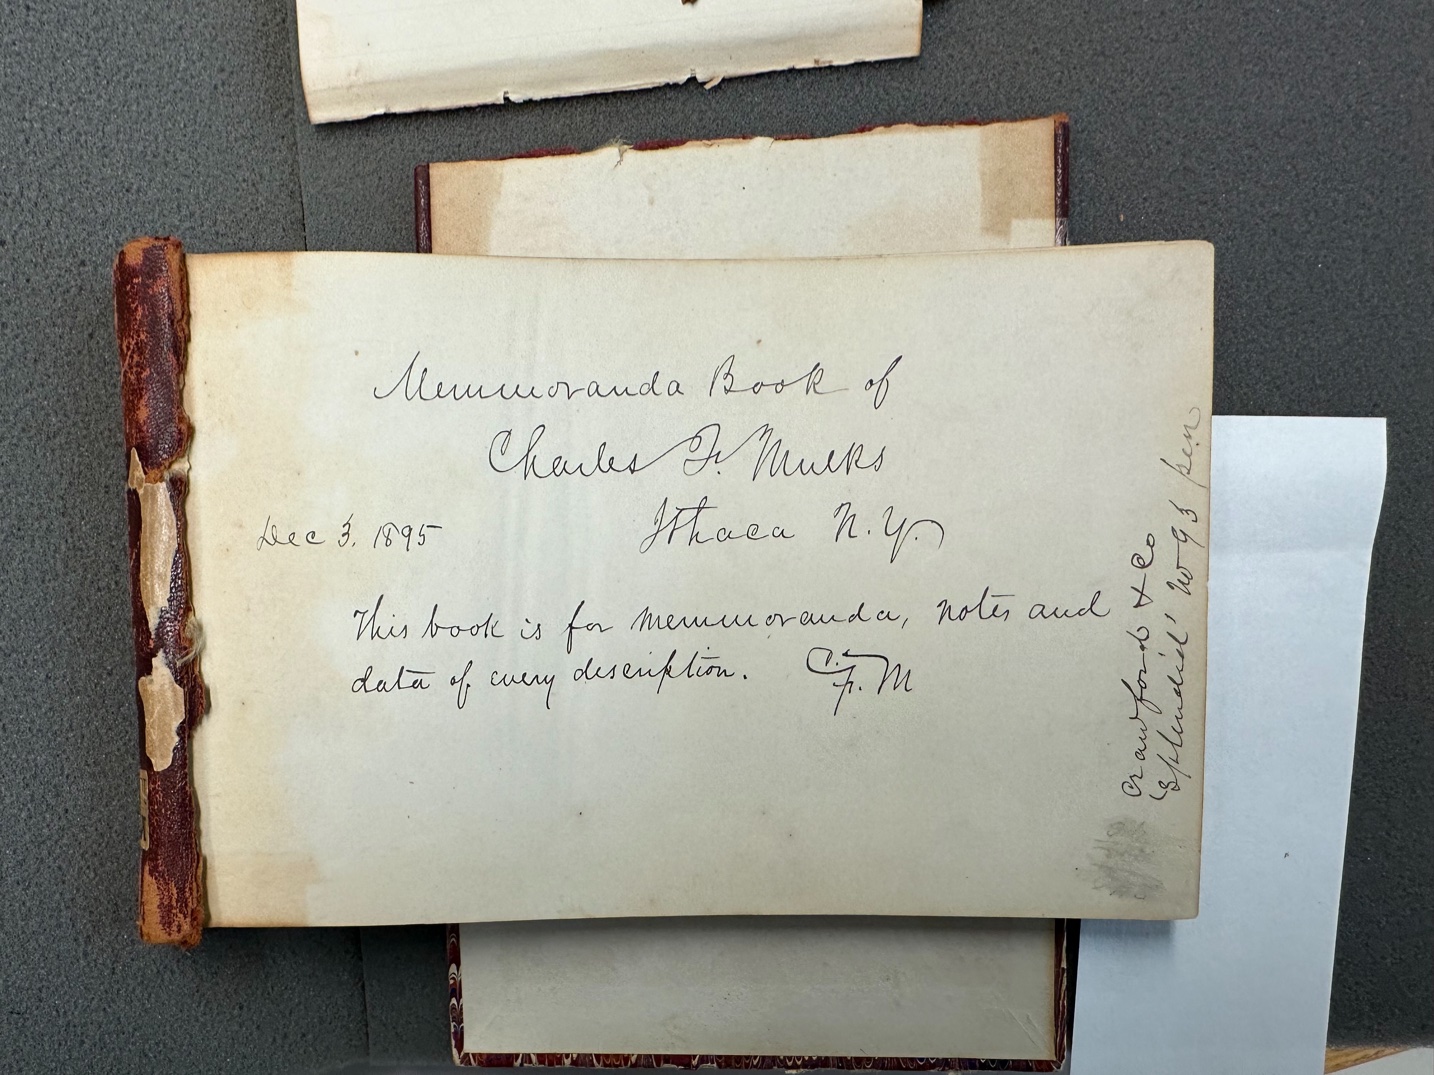 Memmoranda Book of
Charles F. Mulks
Dec 3, 1895 Ithaca N.Y.
This book is for memmoranda, notes and
data of every description. C. F. M
Crawford & Co
'Splendid' No 93 pen